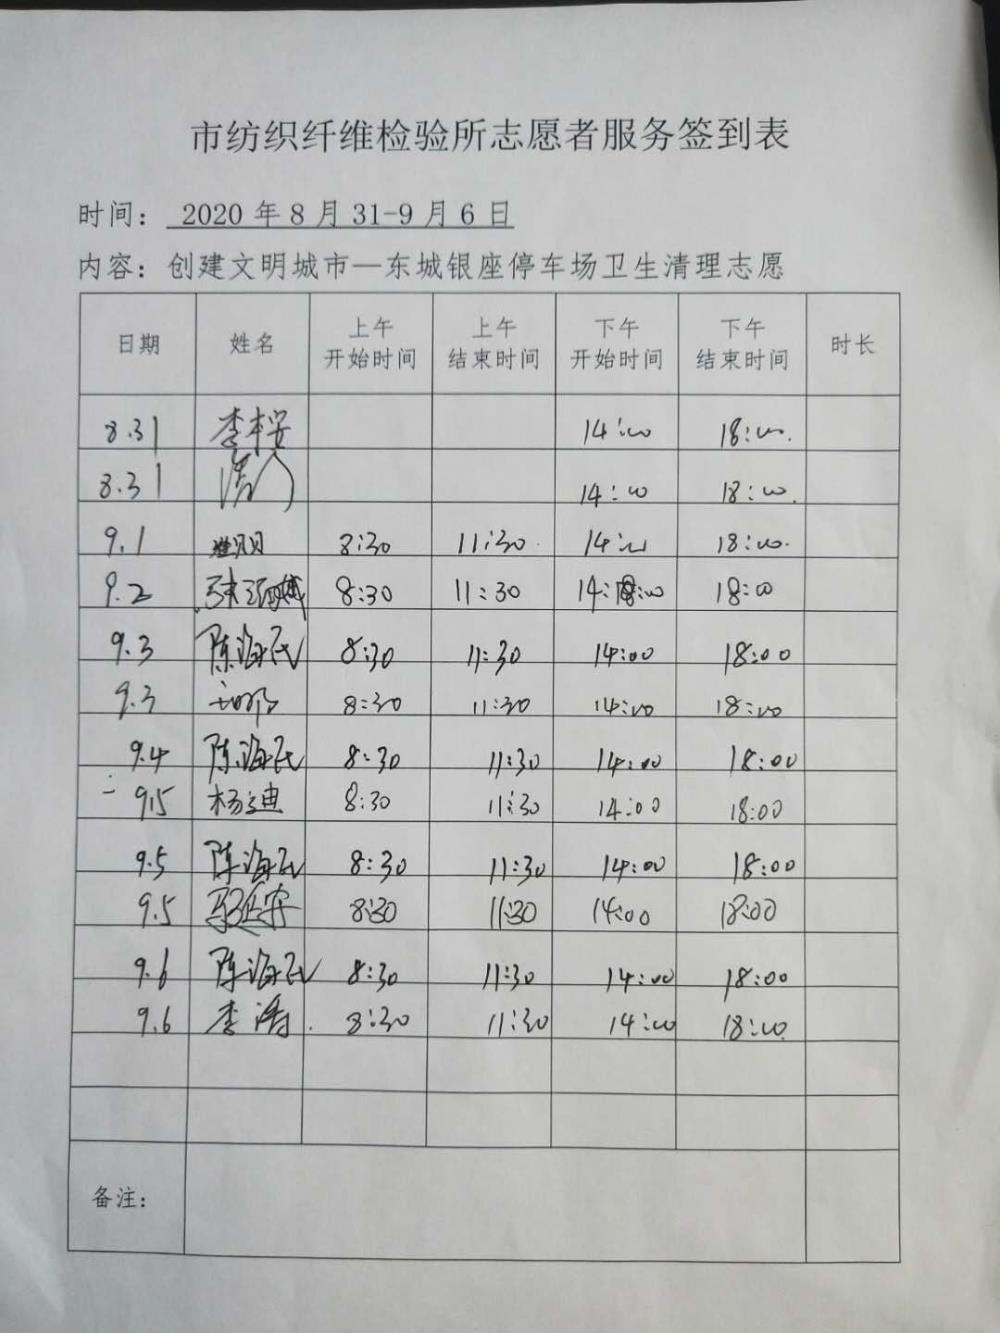 市纺织纤维检验所志愿者服务签到表
时间： 2020 年 8 月 31-9 月 6 日
内容：创建文明城市—东城银座停车场卫生清理志愿
日期 姓名 上午开始时间 上午结束时间 下午开始时间 下午结束时间 时长
8.31 李桉 14:00 18:00.
8.31 14:00 18:00.
9.1 8:30 11:30. 14:00 18:00.
9.2 8:30 11:30 14:00 18:00
9.3 陈海民 8:30 11:30 14:00 18:00
9.3 8:30 11:30 14:00 18:00
9.4 陈海民 8:30 11:30 14:00 18:00
9.5 杨迪 8:30 11:30 14:00 18:00
9.5 陈海民 8:30 11:30 14:00 18:00
9.5 8:30 11:30 14:00 18:00
9.6 陈海民 8:30 11:30 14:00 18:00
9.6 李涛. 8:30 11:30 14:00 18:00
备注：